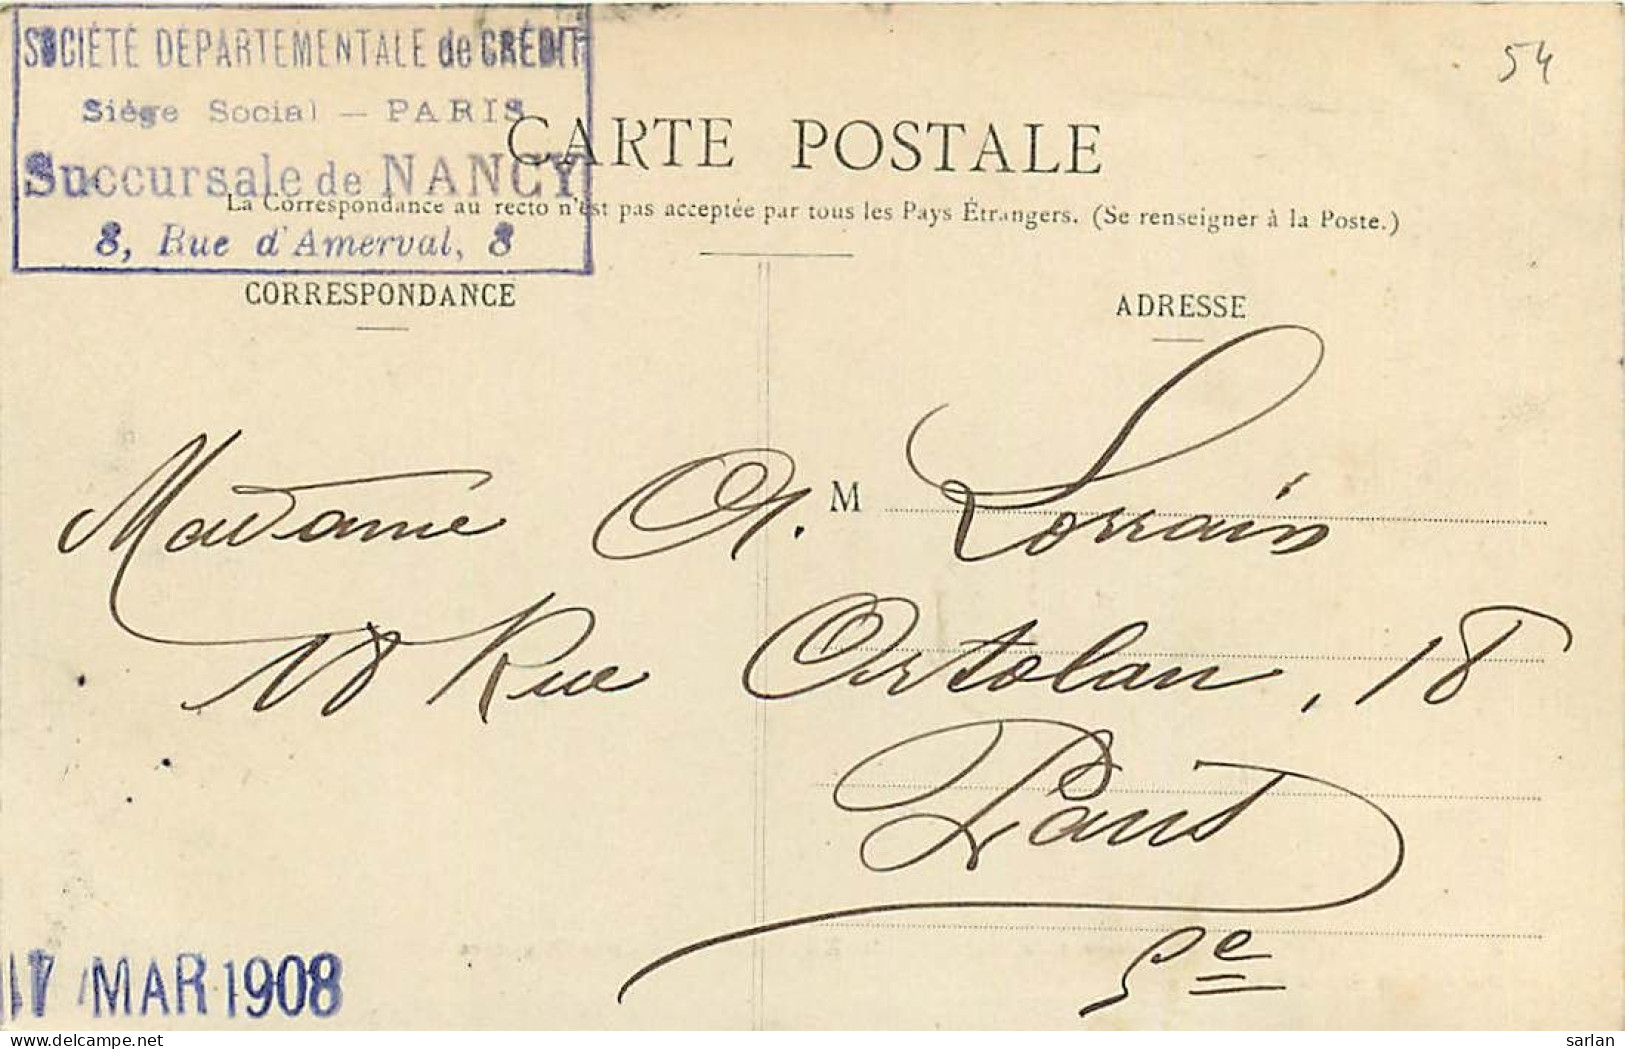 SOCIÉTÉ DÉPARTEMENTALE de CRÉDIT
Siège Social — PARIS
Succursale de NANCY
8, Rue d'Amerval, 8
54
CARTE POSTALE
La Correspondance au recto n'est pas acceptée par tous les Pays Étrangers. (Se renseigner à la Poste.)
CORRESPONDANCE
ADRESSE
M
Madame A. Lorrain
18 Rue Ortolan, 18
Paris
5e
17 MAR 1908
sarlan
delcampe.net